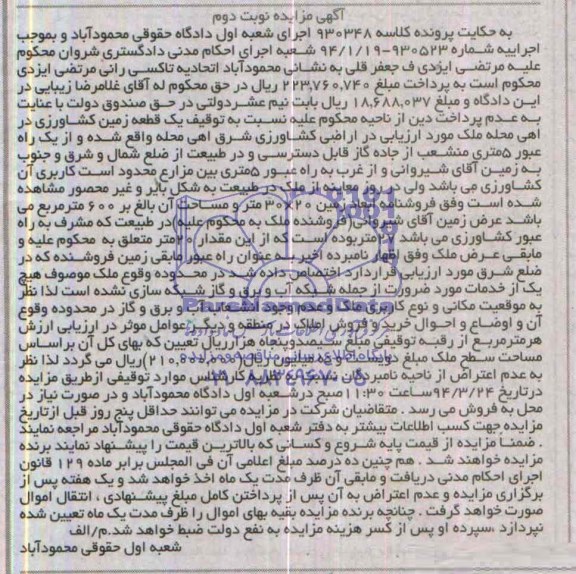 آگهی مزایده نوبت دوم
به حکایت پرونده کلاسه ۹۳۰۳۴۸ اجرای شعبه اول دادگاه حقوقی محمودآباد و بموجب
اجراییه شماره ۹۳۰۵۲۳-۹۴/۱/۱۹ شعبه اجرای احکام مدنی دادگستری شروان محکوم
علیه مرتضی ایزدی ف جعفر قلی به نشانی محمودآباد اتحادیه تاکسی رانی مرتضی ایزدی
محکوم است به پرداخت مبلغ ۲۲۳,۷۶۰,۷۴۰ ریال در حق محکوم له آقای غلامرضا زیبایی در
این دادگاه و مبلغ ۱۸,۶۸۸,۰۳۷ ریال بابت نیم عشردولتی در حق صندوق دولت با عنایت
به عدم پرداخت دین از ناحیه محکوم علیه نسبت به توقیف یک قطعه زمین کشاورزی در
اهی محله ملک مورد ارزیابی در اراضی کشاورزی شرق اهی محله واقع شده و از یک راه
عبور ۵متری منشعب از جاده گاز قابل دسترسی و در طبیعت از ضلع شمال و شرق و جنوب
به زمین آقای شیروانی و از غرب به راه عبور ۵متری بین مزارع محدود است کاربری آن
کشاورزی می باشد ولی در روز معاینه از ملک در طبیعت به شکل بایر و غیر محصور مشاهده
شده است وفق فروشنامه ابعاد زمین ۲۰×۳۰ متر و مساحت آن بالغ بر ۶۰۰ مترمربع می
باشد عرض زمین آقای شیروانی(فروشنده ملک به محکوم علیه)در طبیعت که مشرف به راه
عبور کشاورزی می باشد ۲۷متربوده است که از این مقدار ۲۰متر متعلق به محکوم علیه و
مابقی عرض ملک وفق اظهار نامبرده اخیر به عنوان راه عبور مابقی زمین فروشنده که در
ضلع شرق مورد ارزیابی قراردارد اختصاص داده شد در محدوده وقوع ملک موصوف هیچ
یک از خدمات مورد ضرورت از جمله شبکه آب و برق و گاز شبکه سازی نشده است لذا نظر
به موقعیت مکانی و نوع کاربری ملک و عدم وجود انشعابات آب و برق و گاز در محدوده وقوع
آن و اوضاع و احوال خرید و فروش املاک در منطقه و دیگر عوامل موثر در ارزیابی ارزش
هرمترمربع از رقبه توقیفی مبلغ سیصدوپنجاه هزارریال تعیین که بهای کل آن براساس
مساحت سطح ملک مبلغ دویست و ده میلیون ریال(۲۱۰,۰۰۰,۰۰۰)ریال می گردد لذا نظر
به عدم اعتراض از ناحیه نامبردگان نسبت به نظریه کارشناس موارد توقیفی ازطریق مزایده
درتاریخ ۹۴/۳/۲۴ساعت ۱۱:۳۰صبح درشعبه اول دادگاه محمودآباد و در صورت نیاز در
محل به فروش می رسد . متقاضیان شرکت در مزایده می توانند حداقل پنج روز قبل ازتاریخ
مزایده جهت کسب اطلاعات بیشتر به دفتر شعبه اول دادگاه حقوقی محمودآباد مراجعه نمایند
. ضمنا مزایده از قیمت پایه شروع و کسانی که بالاترین قیمت را پیشنهاد نمایند برنده
مزایده خواهند شد . هم چنین ده درصد مبلغ اعلامی آن فی المجلس برابر ماده ۱۲۹ قانون
اجرای احکام مدنی دریافت و مابقی آن ظرف مدت یک ماه اخذ خواهد شد و یک هفته پس از
برگزاری مزایده و عدم اعتراض به آن پس از پرداختن کامل مبلغ پیشنهادی ، انتقال اموال
صورت خواهد گرفت . چنانچه برنده مزایده بقیه بهای اموال را ظرف مدت یک ماه تعیین شده
نپردازد ،سپرده او پس از کسر هزینه مزایده به نفع دولت ضبط خواهد شد.م/الف
شعبه اول حقوقی محمودآباد